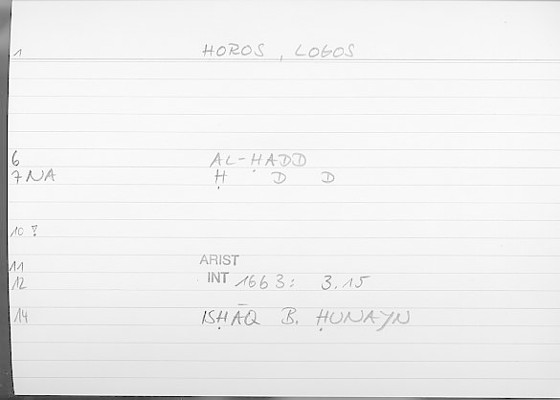 1 HOROS, LOGOS
6 AL-ḤADD
7 NA Ḥ D D
10 !
11 ARIST
12 INT 1663: 3.15
14 ISḤĀQ B. ḤUNAYN